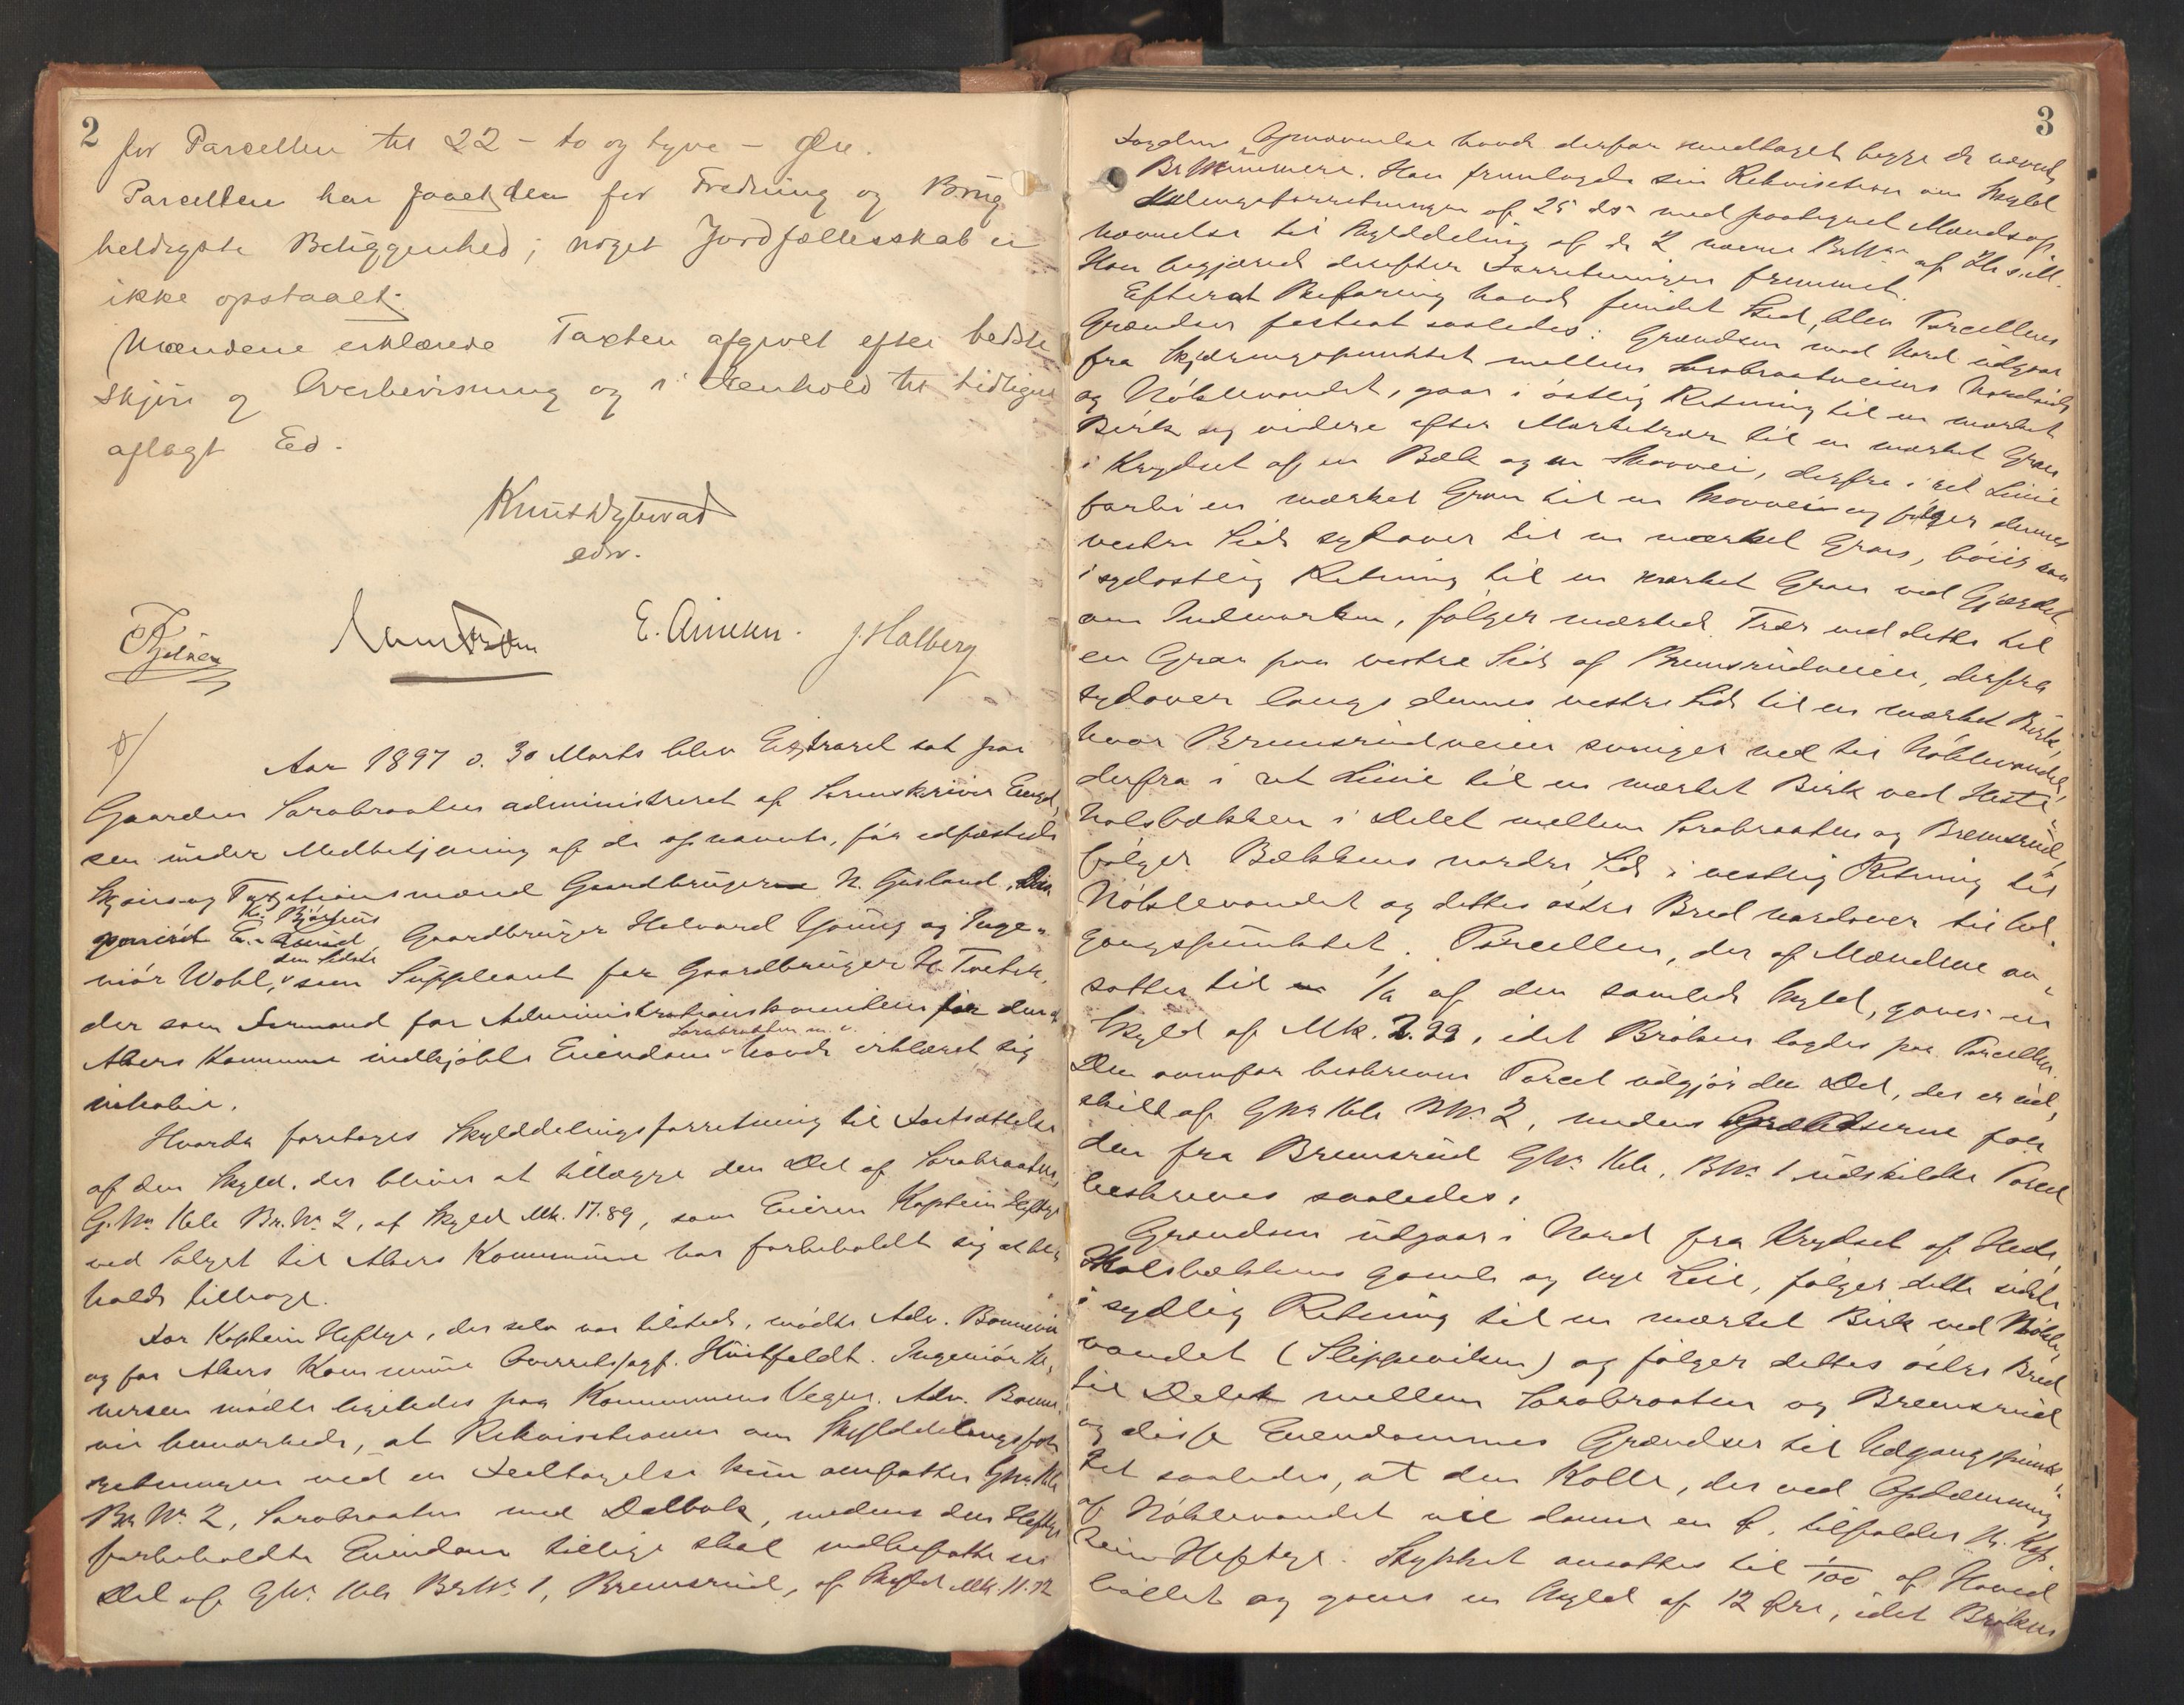 2
for Parcellen til 22 - to og tyve - Øre.
Parcellen har faaet den for Fredning og Brug
heldigste Beliggenhed; noget Jordfællesskab er
ikke opstaaet.
Mændene erklærede Taxten afgivet efter bedste
Skjøn og Overbevisning og i Henhold til tidligere
aflagt Ed.
edsv.
E. J. Halberg
Aar 1897 d. 30 Marts blev Extraret sat paa
Gaarden Sarabraaten administreret af Sorenskriver Engel,
sen under Medbetjening af de opnævnte, før edfæstede
Skjøns og Taxationsmænd Gaardbruger N. Gusland,
Gaardbruger Halvard Young og Inge-
niør Wohl, den Sidste som Suppleant for Gaardbruger
der som Formand for Administrationskomiteen for den af
Akers Kommune indkjøbte Eiendom Sarabraaten m. v. havde erklæret sig
inhabil.
Hvorda foretoges Skylddelingsforretning til Fastsættelse
af den Skyld, der bliver at tillægge den Del af Sarabraaten
G.No 161 Br.No 2, af Skyld Mk. 17.89, som Eieren Kaptein Heftye
ved Salget til Akers Kommune har forbeholdt sig at be-
holde tilbage.
For Kaptein Heftye, der selv var tilstede, mødte Adv. Bonnevie
og for Akers Kommune Overretssagf. Huitfeldt. Ingeniør
mødte ligeledes paa Kommunens Vegne. Adv. Bonne-
vie bemærkede, at Rekvisitionen om Skylddelingsfor-
retningen ved en Feiltagelse kun omfatter GNo 161
Br No 2, Sarabraaten med Dalbak, medens den Heftye
forbeholdte Eiendom tillige skal indbefatte en
Del af GNo 161 BrNo 1, Bremsrud, af Skyld Mk. 11.72
3
Opnævnelse havde derfor medtaget begge de nævnte
Br Nummere. Han fremlagde sin Rekvisition om Skyld
delingsforretningen af 25 ds med paategnet Mandsop
nævnelse til Skylddeling af de 2 Br.No af
Han begjærede derefter Forretningen fremmet.
Efterat Befaring havde fundet Sted, blev Parcellens
Grændser fastsat saaledes: Grændsen mod Nord udgaar
fra Skjæringspunktet mellem Sarabraatveiens Nordside
og Nøklevandet, gaar i østlig Retning til en mærket
Birk og videre efter Mærketrær til en mærket Gran
i Krydset af en Bæk og en Skovvei, derfra i ret Linie
forbi en mærket Gran til en Skovvei og følger dennes
vestre Side sydover til en mærket Gran, bøier saa
i sydøstlig Retning til en mærket Gran ved Gjærdet
om Indmarken, følger mærked. Trær ved dette til
en Gran paa vestre Side af Bremsrudveien, derfra
sydover langs dennes vestre Side til en mærket Birk,
hvor Bremsrudveien svinger ned til Nøklevandet,
derfra i ret Linie til en mærket Birk ved Heste-
holsbækken i Delet mellem Sarabraaten og Bremsrud,
følger Bækkens nordre Side i vestlig Retning til
Nøklevandet og dettes østre Bred nordover til Ud-
gangspunktet. Parcellen, der af Mændene an-
sattes til 1/6 af den samlede Skyld, gaves en
Skyld af Mk. 2.99, idet Brøken lagdes paa Parcellen.
Den ovenfor beskrevne Parcel udgjør den Del, der er ud-
skilt af GNo 161 BNo 2, medens Grændserne for
den fra Bremsrud GNo 161, BNo 1 udskildte Parcel
beskreves saaledes:
Grændsen udgaar i Nord fra Krydset af Heste-
holsbækkens gamle og nye Leie, følger dette sidste
i sydlig Retning til en mærket Birk ved Nøkle-
vandet (Slippeviken) og følger dettes østre Bred
til Delet mellem Sarabraaten og Bremsrud
og disse Eiendommes Grændser til Udgangspunk-
tet saaledes, at den Kolle, der ved Opdæmning
af Nøklevandet vil danne en Ø, tilfalder Hr. Kap-
tein Heftye. Stykket ansattes til 1/100 af Hoved
bøllet og gaves en Skyld af 12 Øre, idet Brøken